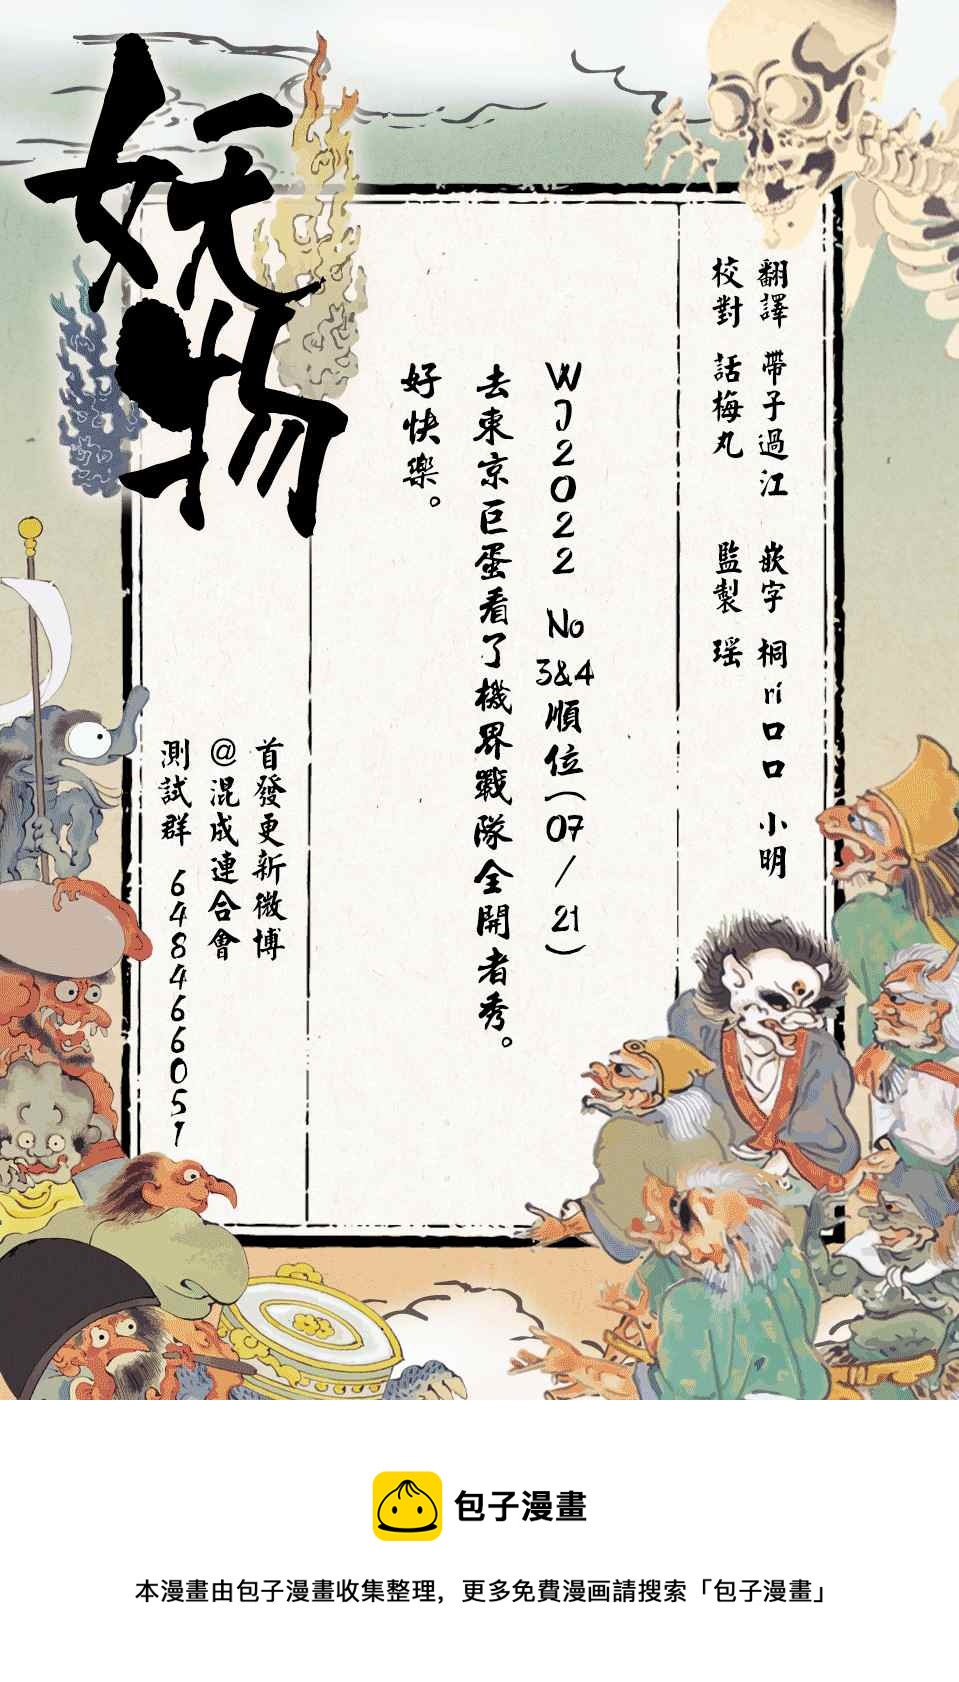 妖物
翻譯 帶子過江 嵌字 桐rí口口 小明
校對 話梅丸 監製 瑶
WJ2022 No3&4順位(07/21)
去東京巨蛋看了機界戰隊全開者秀。
好快樂。
首發更新微博
@混成連合會
測試群 648466051
包子漫畫
本漫畫由包子漫畫收集整理，更多免費漫画請搜索「包子漫畫」